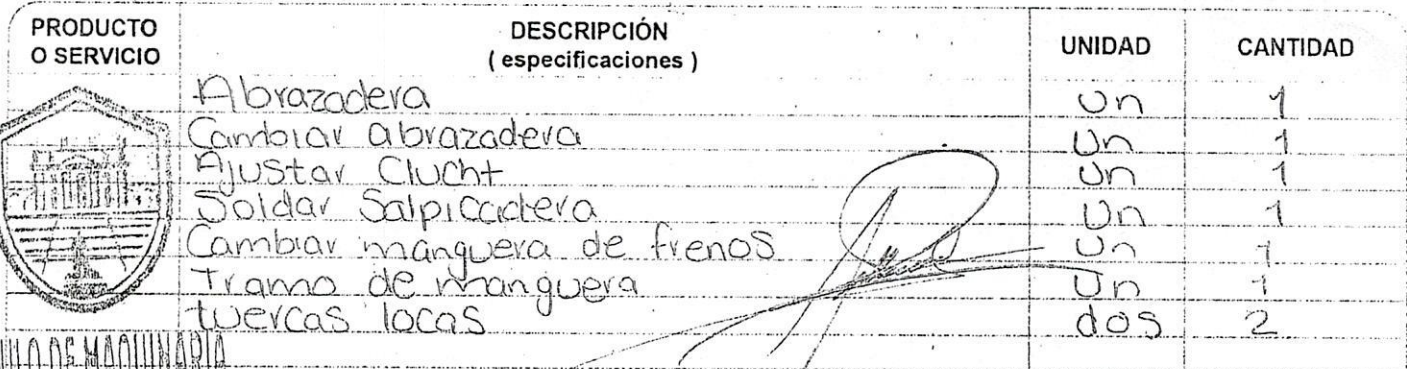 PRODUCTO O SERVICIO DESCRIPCIÓN ( especificaciones ) UNIDAD CANTIDAD
Abrazadera Un 1
Cambiar abrazadera Un 1
Ajustar Clucht Un 1
Soldar Salpicadera Un 1
Cambiar manguera de frenos Un 1
Tramo de manguera Un 1
tuercas locas dos 2
DE MAQUINARIA